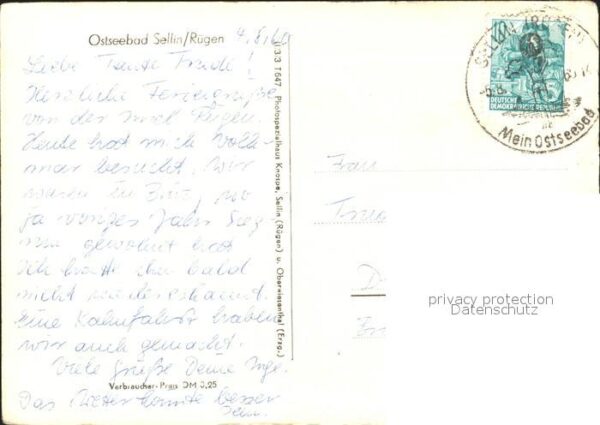 Ostseebad Sellin/Rügen 4.8.60
Liebe Tante Trude!
Herzliche Feriengrüße
von der Insel Rügen.
Heute hat mich Volk-
mar besucht. Wir
waren in Binz, wo
ja voriges Jahr
gewohnt hat
Ich hatte ihn bald
nicht wiedererkannt.
Eine Kahnfahrt haben
wir auch gemacht.
Viele Grüße Deine Inge.
Verbraucher-Preis DM 0,25
Das Wetter könnte besser
sein.
II/3/3 T647 - Photospezialhaus Knospe, Sellin (Rügen) u. Oberwiesenthal (Erzg.)
DEUTSCHE
DEMOKRATISCHE REPUBLIK
SELLIN
Mein Ostseebad
Frau
privacy protection
Datenschutz